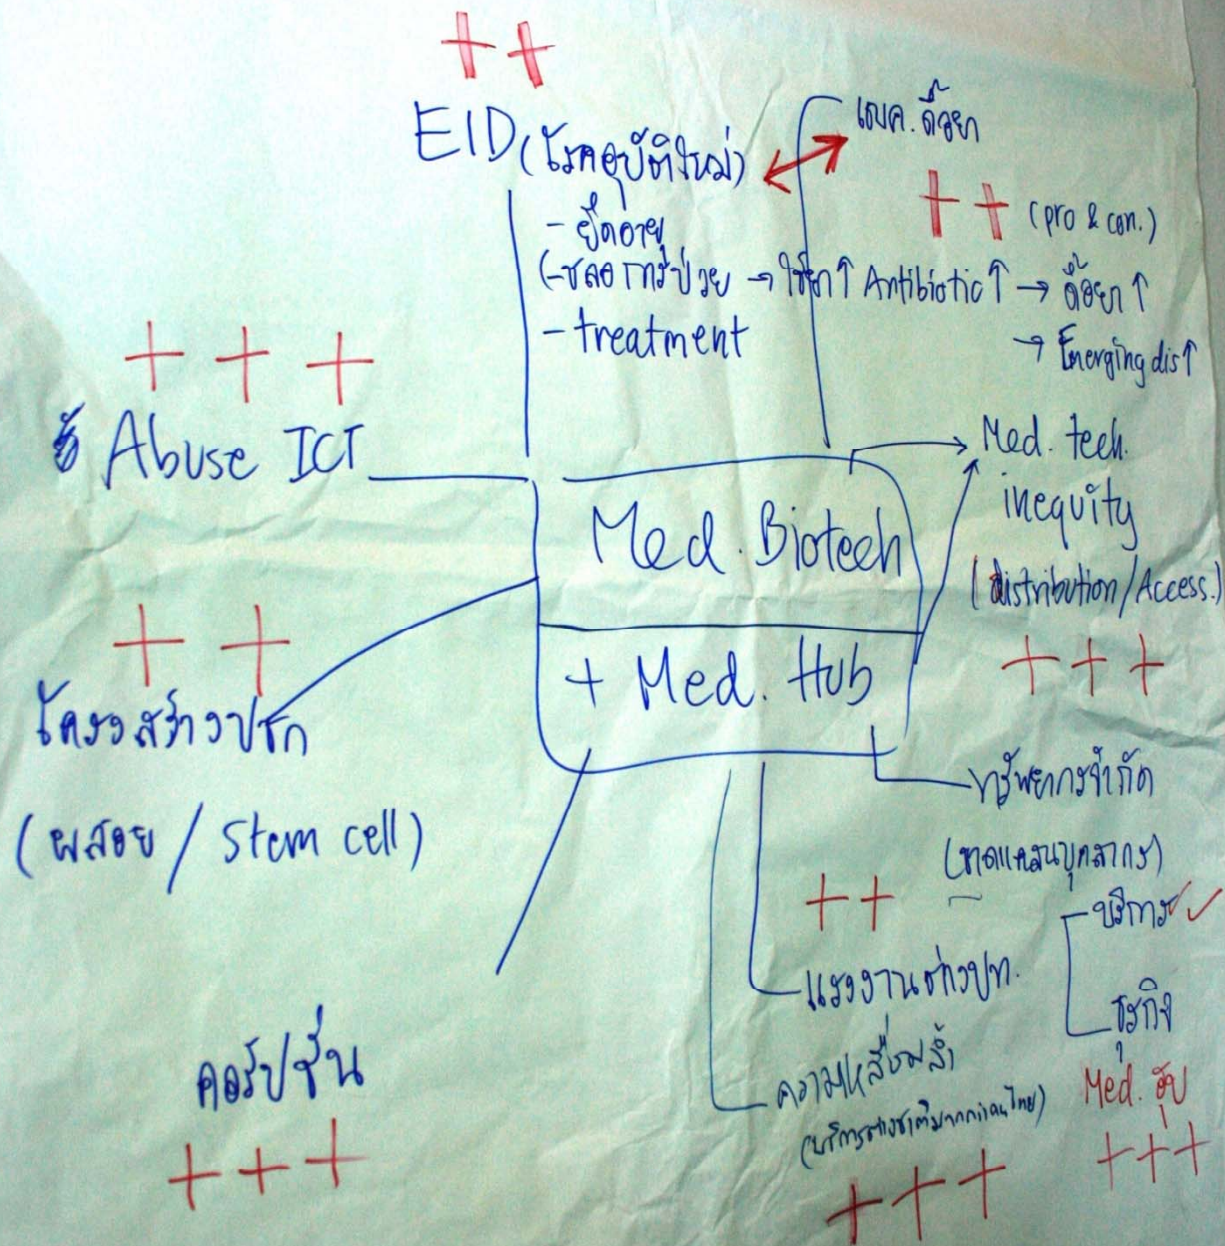 ++
EID (โรคอุบัติใหม่)
- ยืดอายุ
(-ชลอการป่วย → ใช้ยา↑ Antibiotic↑ → ดื้อยา↑
→ Emerging dis↑
- treatment
ดื้อยา
++ (pro & con.)
+++
Abuse ICT
Med. Biotech
+ Med. Hub
Med. tech.
inequity
(distribution/Access.)
+++
++
โครงสร้างปชก
(ผสอย / Stem cell)
ทรัพยากรจำกัด
(ขาดแคลนบุคลากร)
++
บริการ ✓
ธุรกิจ
Med. ฮับ
+++
แรงงานต่างปท.
ความเหลื่อมล้ำ
(บริการต่างชาติมากกว่าคนไทย)
+++
คอรัปชั่น
+++